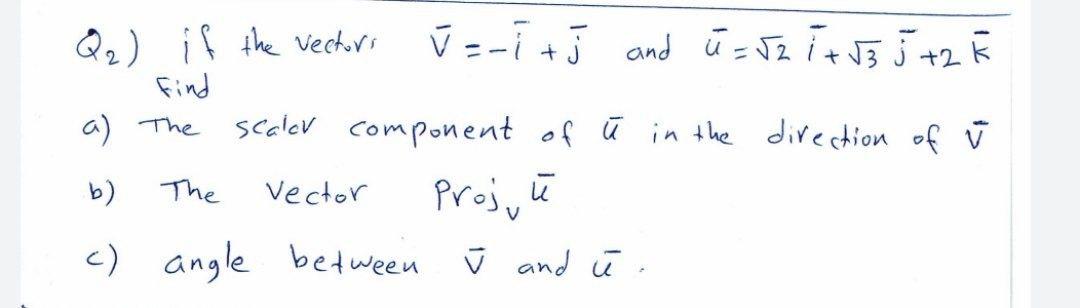 Q2) if the vectors v̄ = -ī + j̄ and ū = √2 ī + √3 j̄ + 2 k̄
Find
a) The scalar component of ū in the direction of v̄
b) The Vector Proj_v ū
c) angle between v̄ and ū .